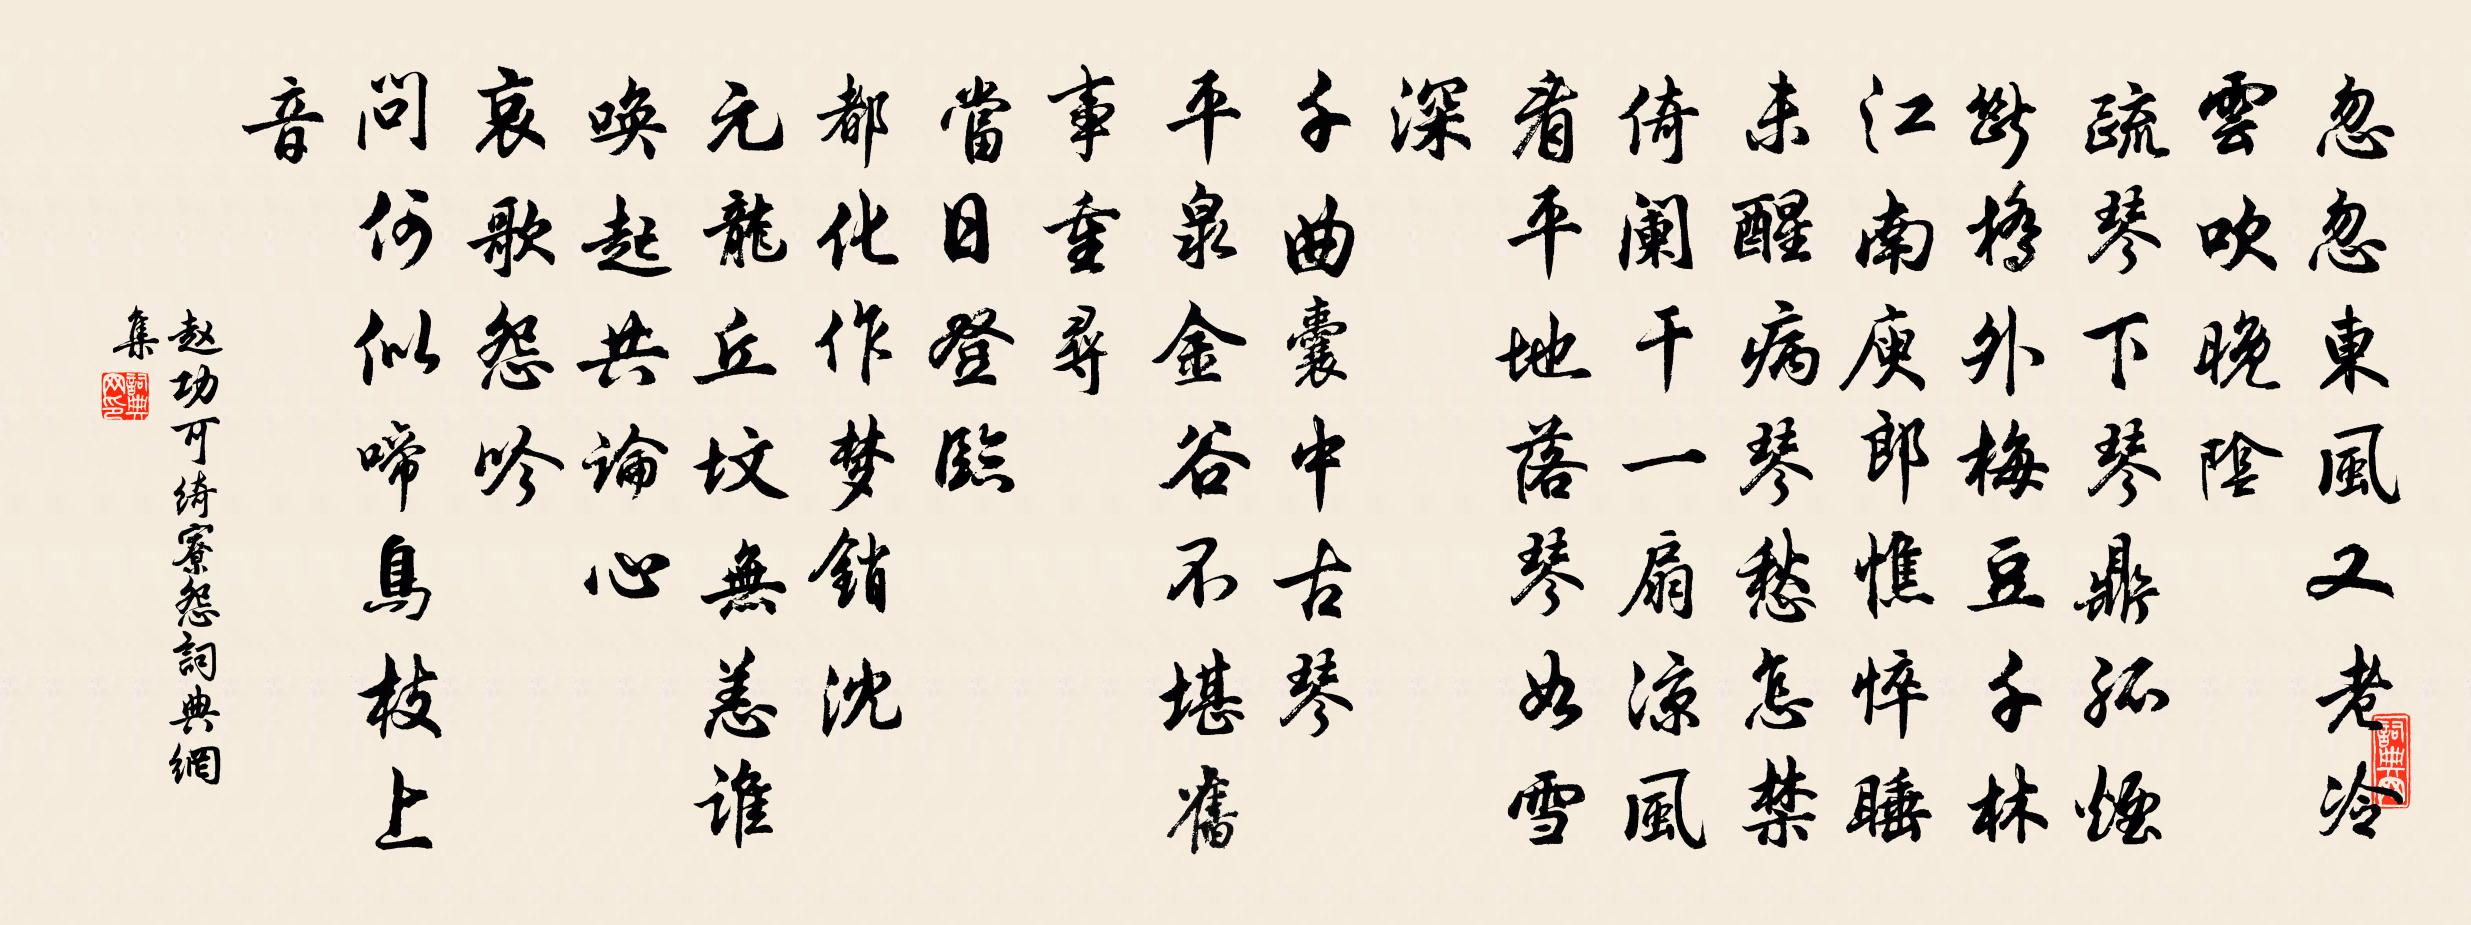 忽忽東風又老冷
雲吹晚陰
疏琴下琴鼎孤煙
斷橋外梅豆千林
江南庾郎憔悴睡
未醒病琴愁怎禁
倚闌干一扇凉風
看平地落琴如雪
深
千曲囊中古琴
平泉金谷不堪舊
事重尋
當日登臨
都化作梦銷沈
元龍丘坟無恙誰
喚起共論心
哀歌怨吟
問何似啼鳥枝上
音
赵功可綺寮怨詞典網
集
詞典網印